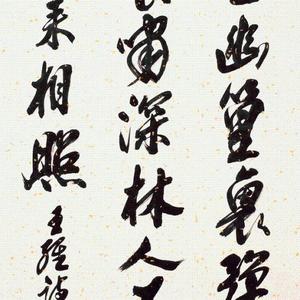 幽篁裏彈
嘯深林人不
来相照
王維詩